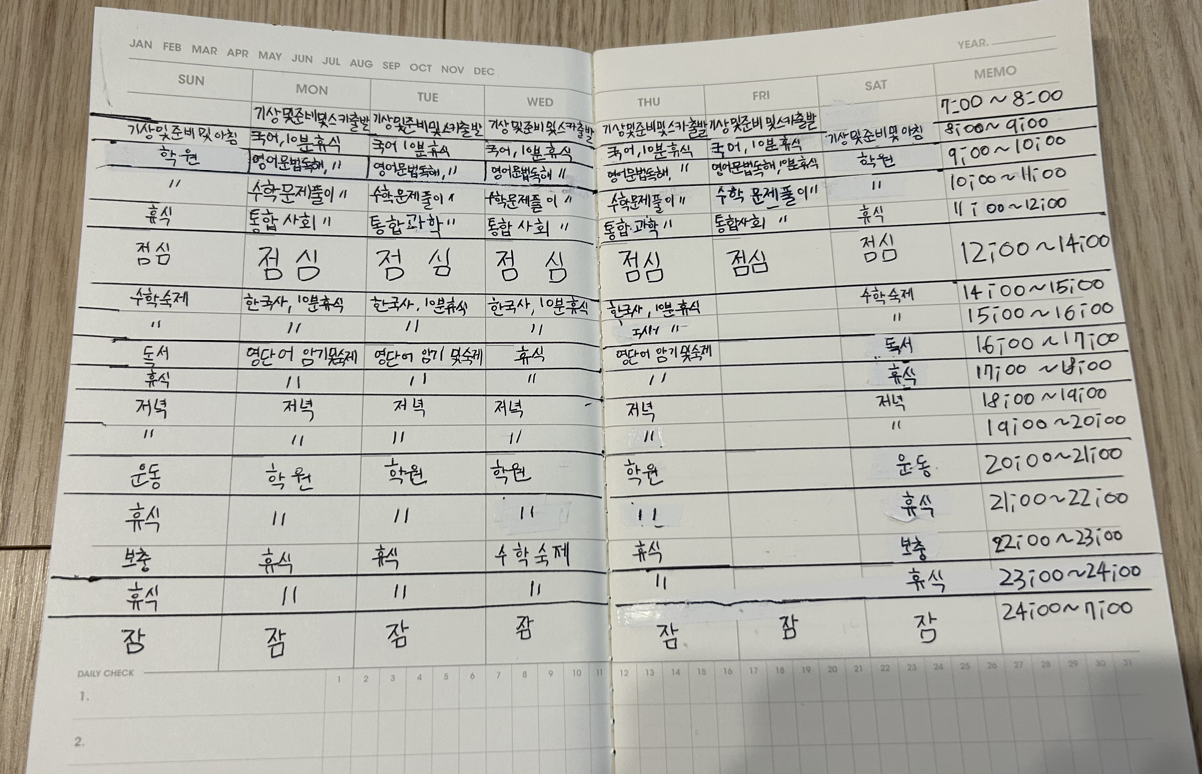 JAN FEB MAR APR MAY JUN JUL AUG SEP OCT NOV DEC YEAR.
SUN MON TUE WED THU FRI SAT MEMO
기상및준비및스카출발 기상및준비및스카출발 기상및준비및스카출발 기상및준비및스카출발 기상및준비및스카출발 7:00~8:00
기상및준비및아침 국어,10분휴식 국어 10분휴식 국어,10분휴식 국어,10분휴식 국어,10분휴식 기상및준비및아침 8:00~9:00
학원 영어문법독해, " 영어문법독해, " 영어문법독해 " 영어문법독해, " 영어문법독해,10분휴식 학원 9:00~10:00
" 수학문제풀이 " 수학문제풀이 " 수학문제풀이 " 수학문제풀이 " 수학문제풀이 " " 10:00~11:00
휴식 통합사회 " 통합과학 " 통합사회 " 통합과학 " 통합사회 " 휴식 11:00~12:00
점심 점심 점심 점심 점심 점심 점심 12:00~14:00
수학숙제 한국사,10분휴식 한국사,10분휴식 한국사,10분휴식 한국사,10분휴식 수학숙제 14:00~15:00
" " " " " " 15:00~16:00
독서 영단어 암기및숙제 영단어 암기및숙제 휴식 영단어 암기및숙제 독서 16:00~17:00
휴식 " " " " 휴식 17:00~18:00
저녁 저녁 저녁 저녁 저녁 저녁 18:00~19:00
" " " " " " 19:00~20:00
운동 학원 학원 학원 학원 운동 20:00~21:00
휴식 " " " " 휴식 21:00~22:00
보충 휴식 휴식 수학숙제 휴식 보충 22:00~23:00
휴식 " " " " 휴식 23:00~24:00
잠 잠 잠 잠 잠 잠 잠 24:00~7:00
DAILY CHECK 1 2 3 4 5 6 7 8 9 10 11 12 13 14 15 16 17 18 19 20 21 22 23 24 25 26 27 28 29 30 31
1.
2.